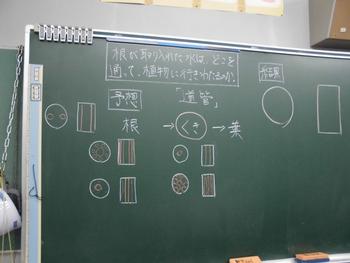 根が取り入れた水は、どこを
通って、植物に行きわたるのか。
結果
予想
「道管」
根 → くき → 葉